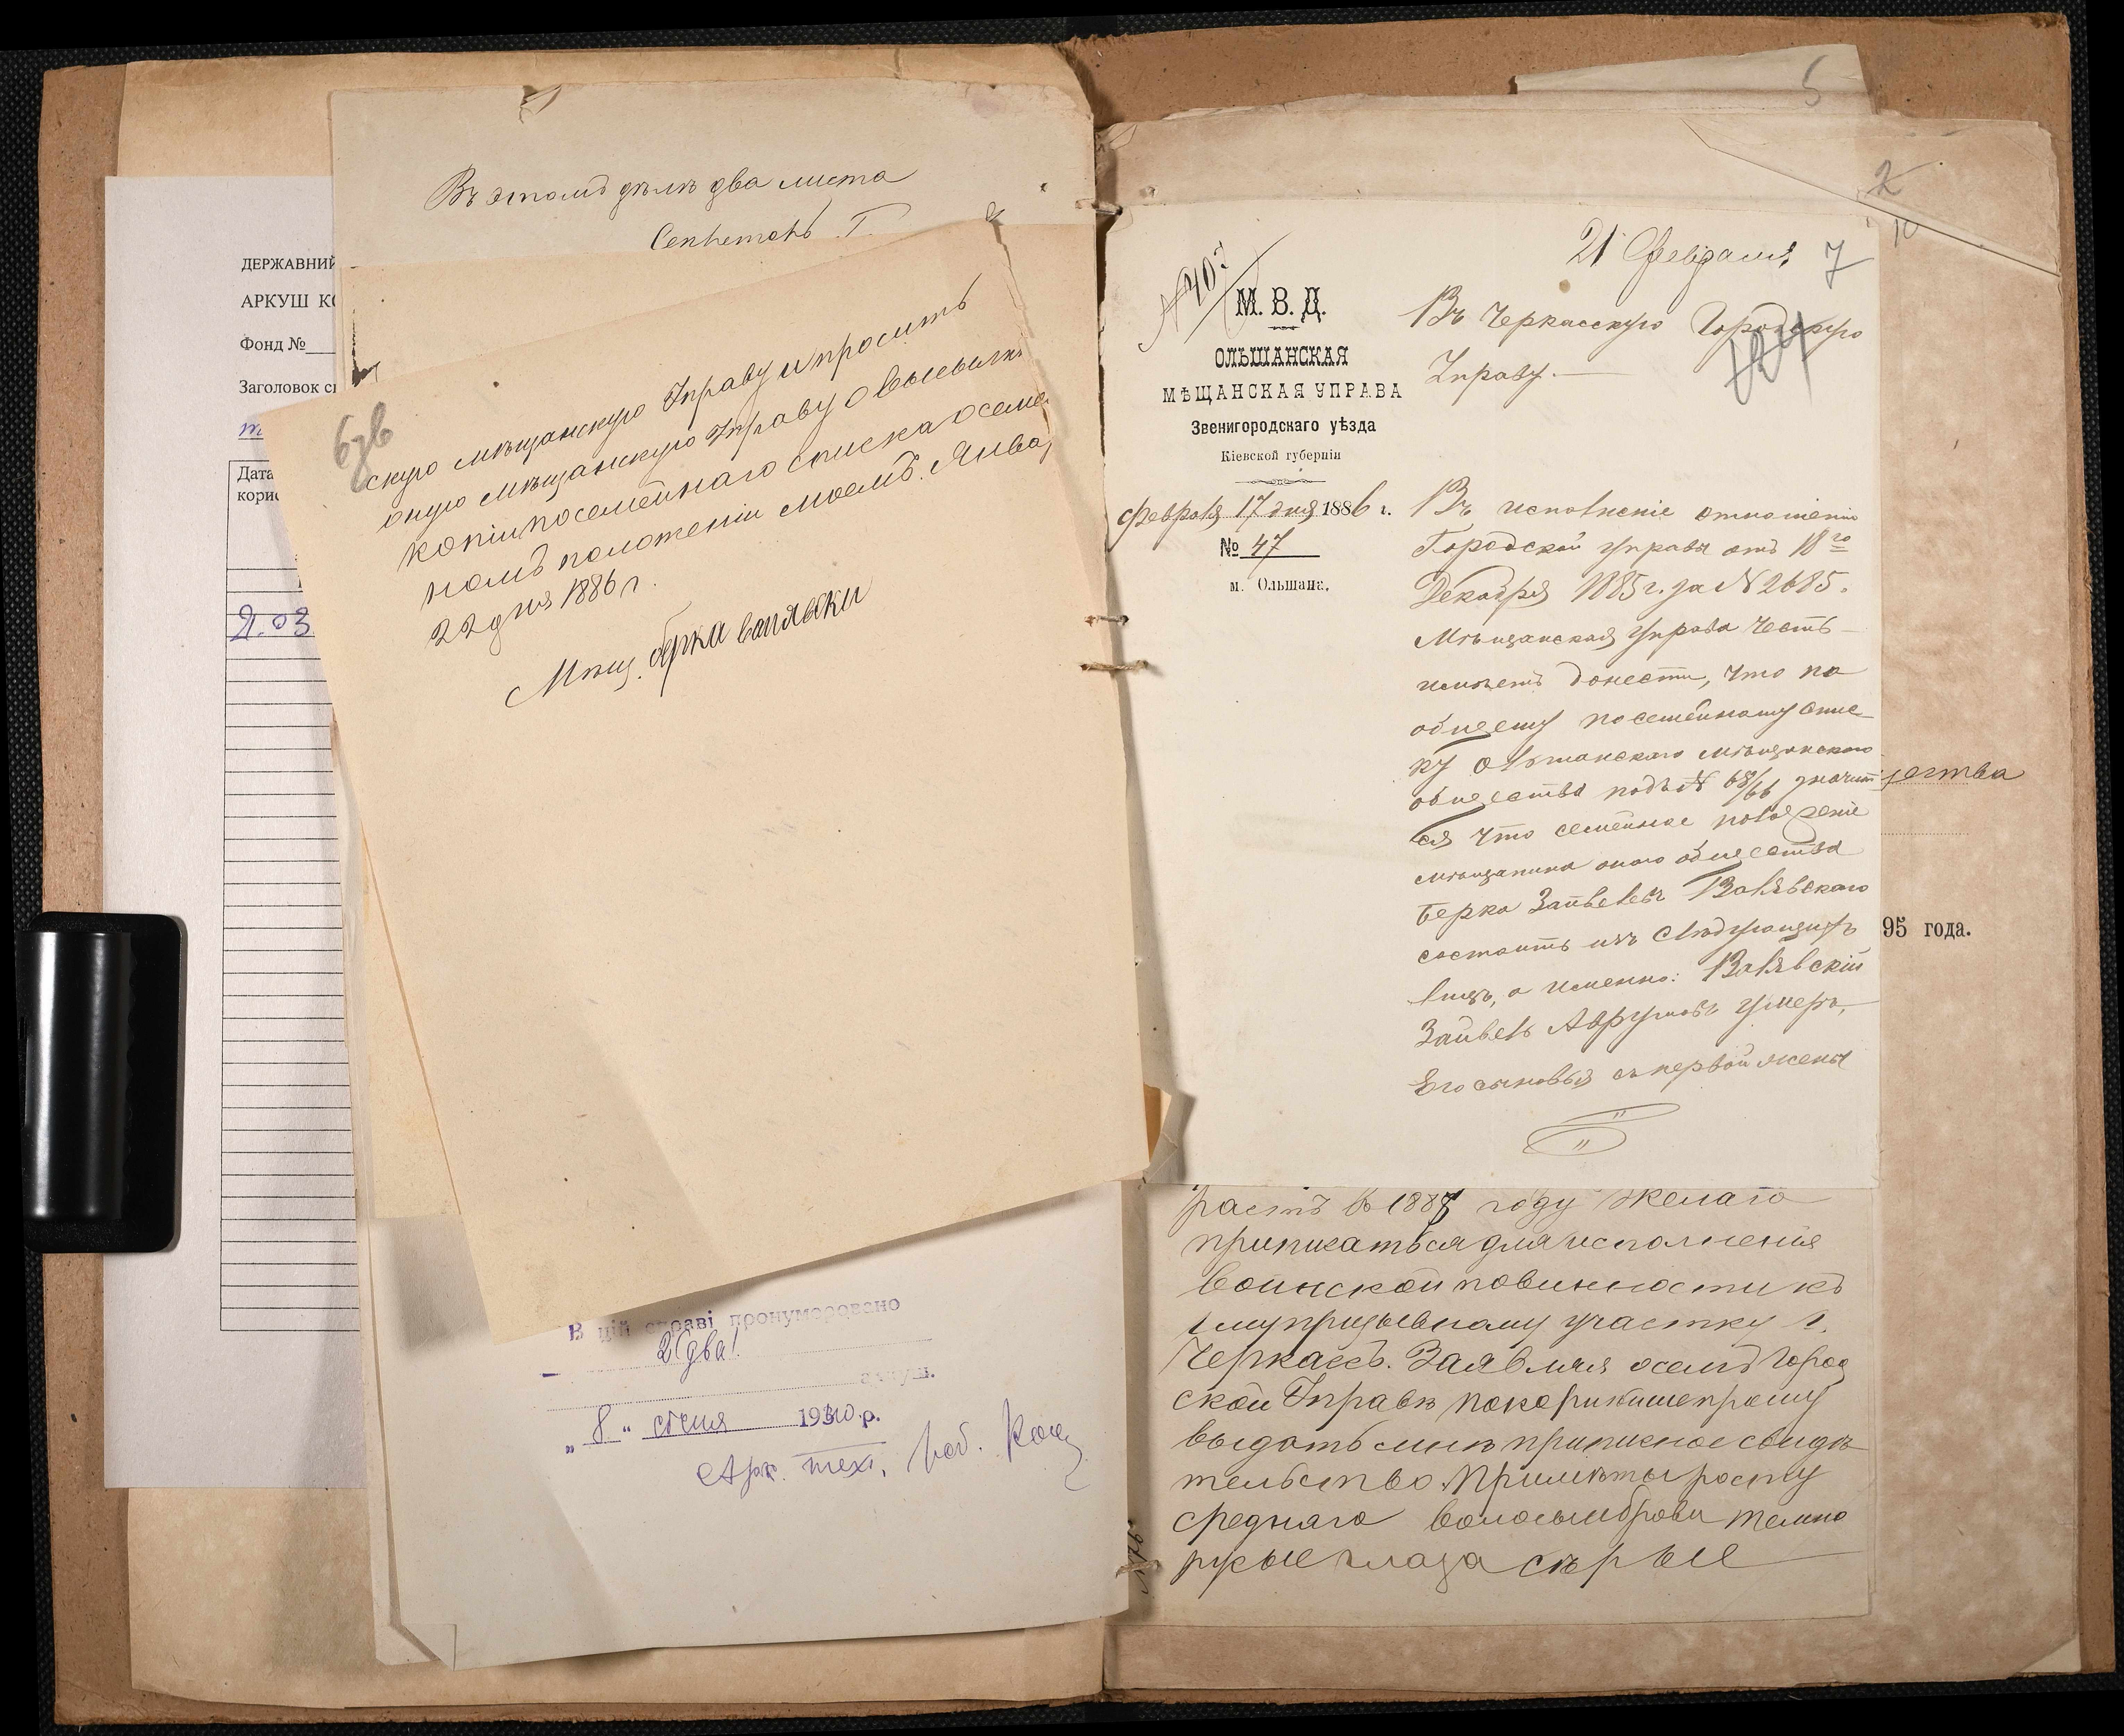 Въ этомъ дѣлѣ два листа
Секретарь Г.
ДЕРЖАВНИЙ
АРКУШ КО
Фонд №
Заголовок с
Дата
кори
Я.03
6зв
скую мѣщанскую Управу и просить
оную мѣщанскую Управу о высылкѣ
копіи посемейнаго списка о семей
номъ положеніи моемъ. Январ
22 дня 1886 г.
Мѣщ.
В цій справі пронумеровано
2 (два)
аркуш.
„ 8 " січня 1940 р.
Арх. тех. роб.
5
2
10
7
№ 407
21 Февраля
М. В. Д.
ОЛЬШАНСКАЯ
МѢЩАНСКАЯ УПРАВА
Звенигородскаго уѣзда
Кіевской губерніи
Февраля 17 дня 1886 г.
№ 47
м. Ольшана.
Въ Черкасскую Городскую
Управу.
Въ исполненіе отношенія
Городской управы отъ 18го
Декабря 1885 г. за № 2685.
Мѣщанская управа честь
имѣетъ донести, что по
общему посемейному спис-
ку Ольшанскаго мѣщанскаго
общества подъ № 68/66 значит
ся что семейное положеніе
мѣщанина оного общества
Берко Зайвелевъ Валявскаго
состоитъ изъ слѣдующихъ
лицъ, а именно: Валявскій
Зайвель Аврумовъ умеръ,
Его сыновья съ первой жены
ства
95 года.
растъ въ 1887 году Желаю
приписаться для исполненія
воинской повинности къ
1 му призывному участку г.
Черкассъ. Заявляя о семъ Город
ской Управѣ покорнѣйше прошу
выдать мнѣ приписное свидѣ
тельство. Примѣты росту
средняго волосы и брови темно
русые глаза сѣрые